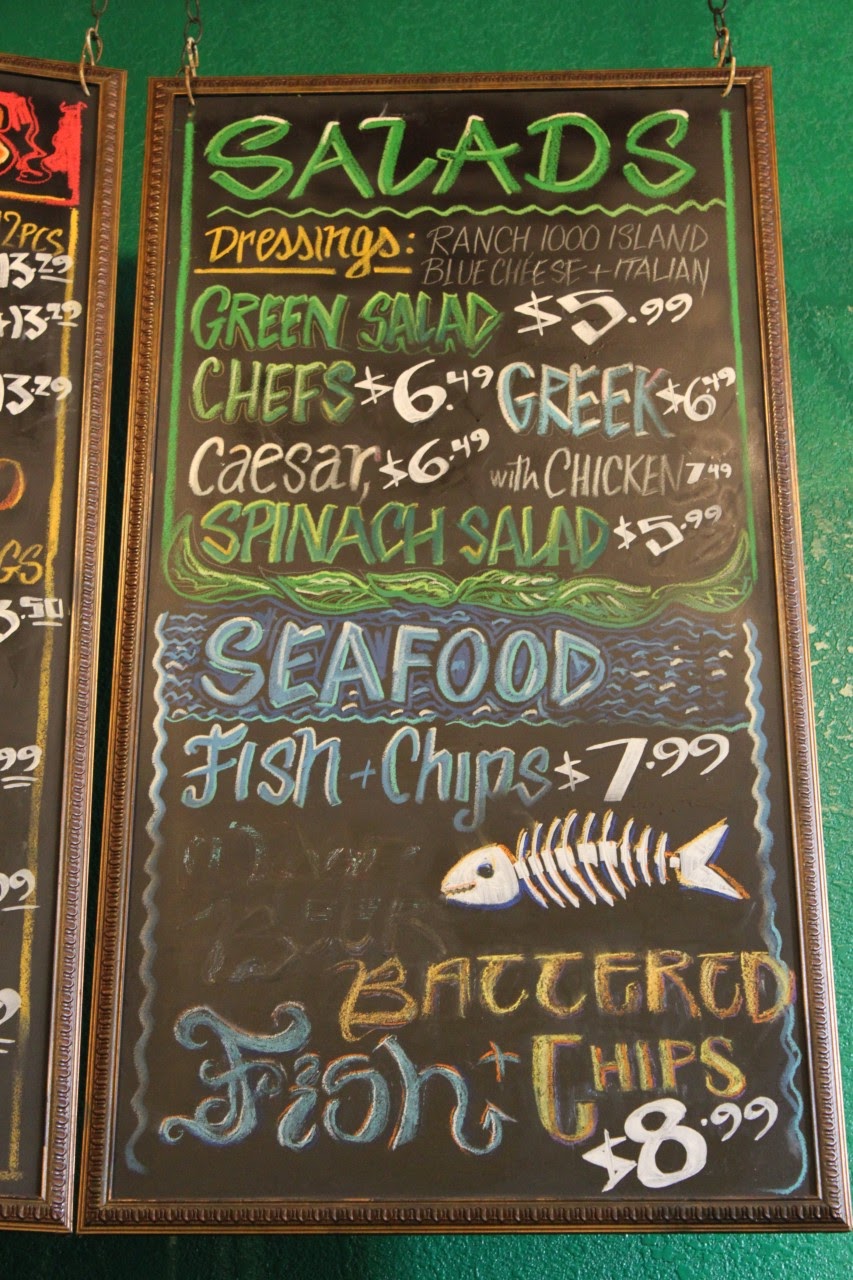 SALADS
Dressings: RANCH 1000 ISLAND
BLUE CHEESE + ITALIAN
GREEN SALAD $5.99
CHEFS $6.49 GREEK $6.49
Caesar, $6.49 with CHICKEN 7.49
SPINACH SALAD $5.99
SEAFOOD
Fish + Chips $7.99
BATTERED
Fish + CHIPS
$8.99
12PCS
13.29
13.29
13.29
GS
3.50
99
99